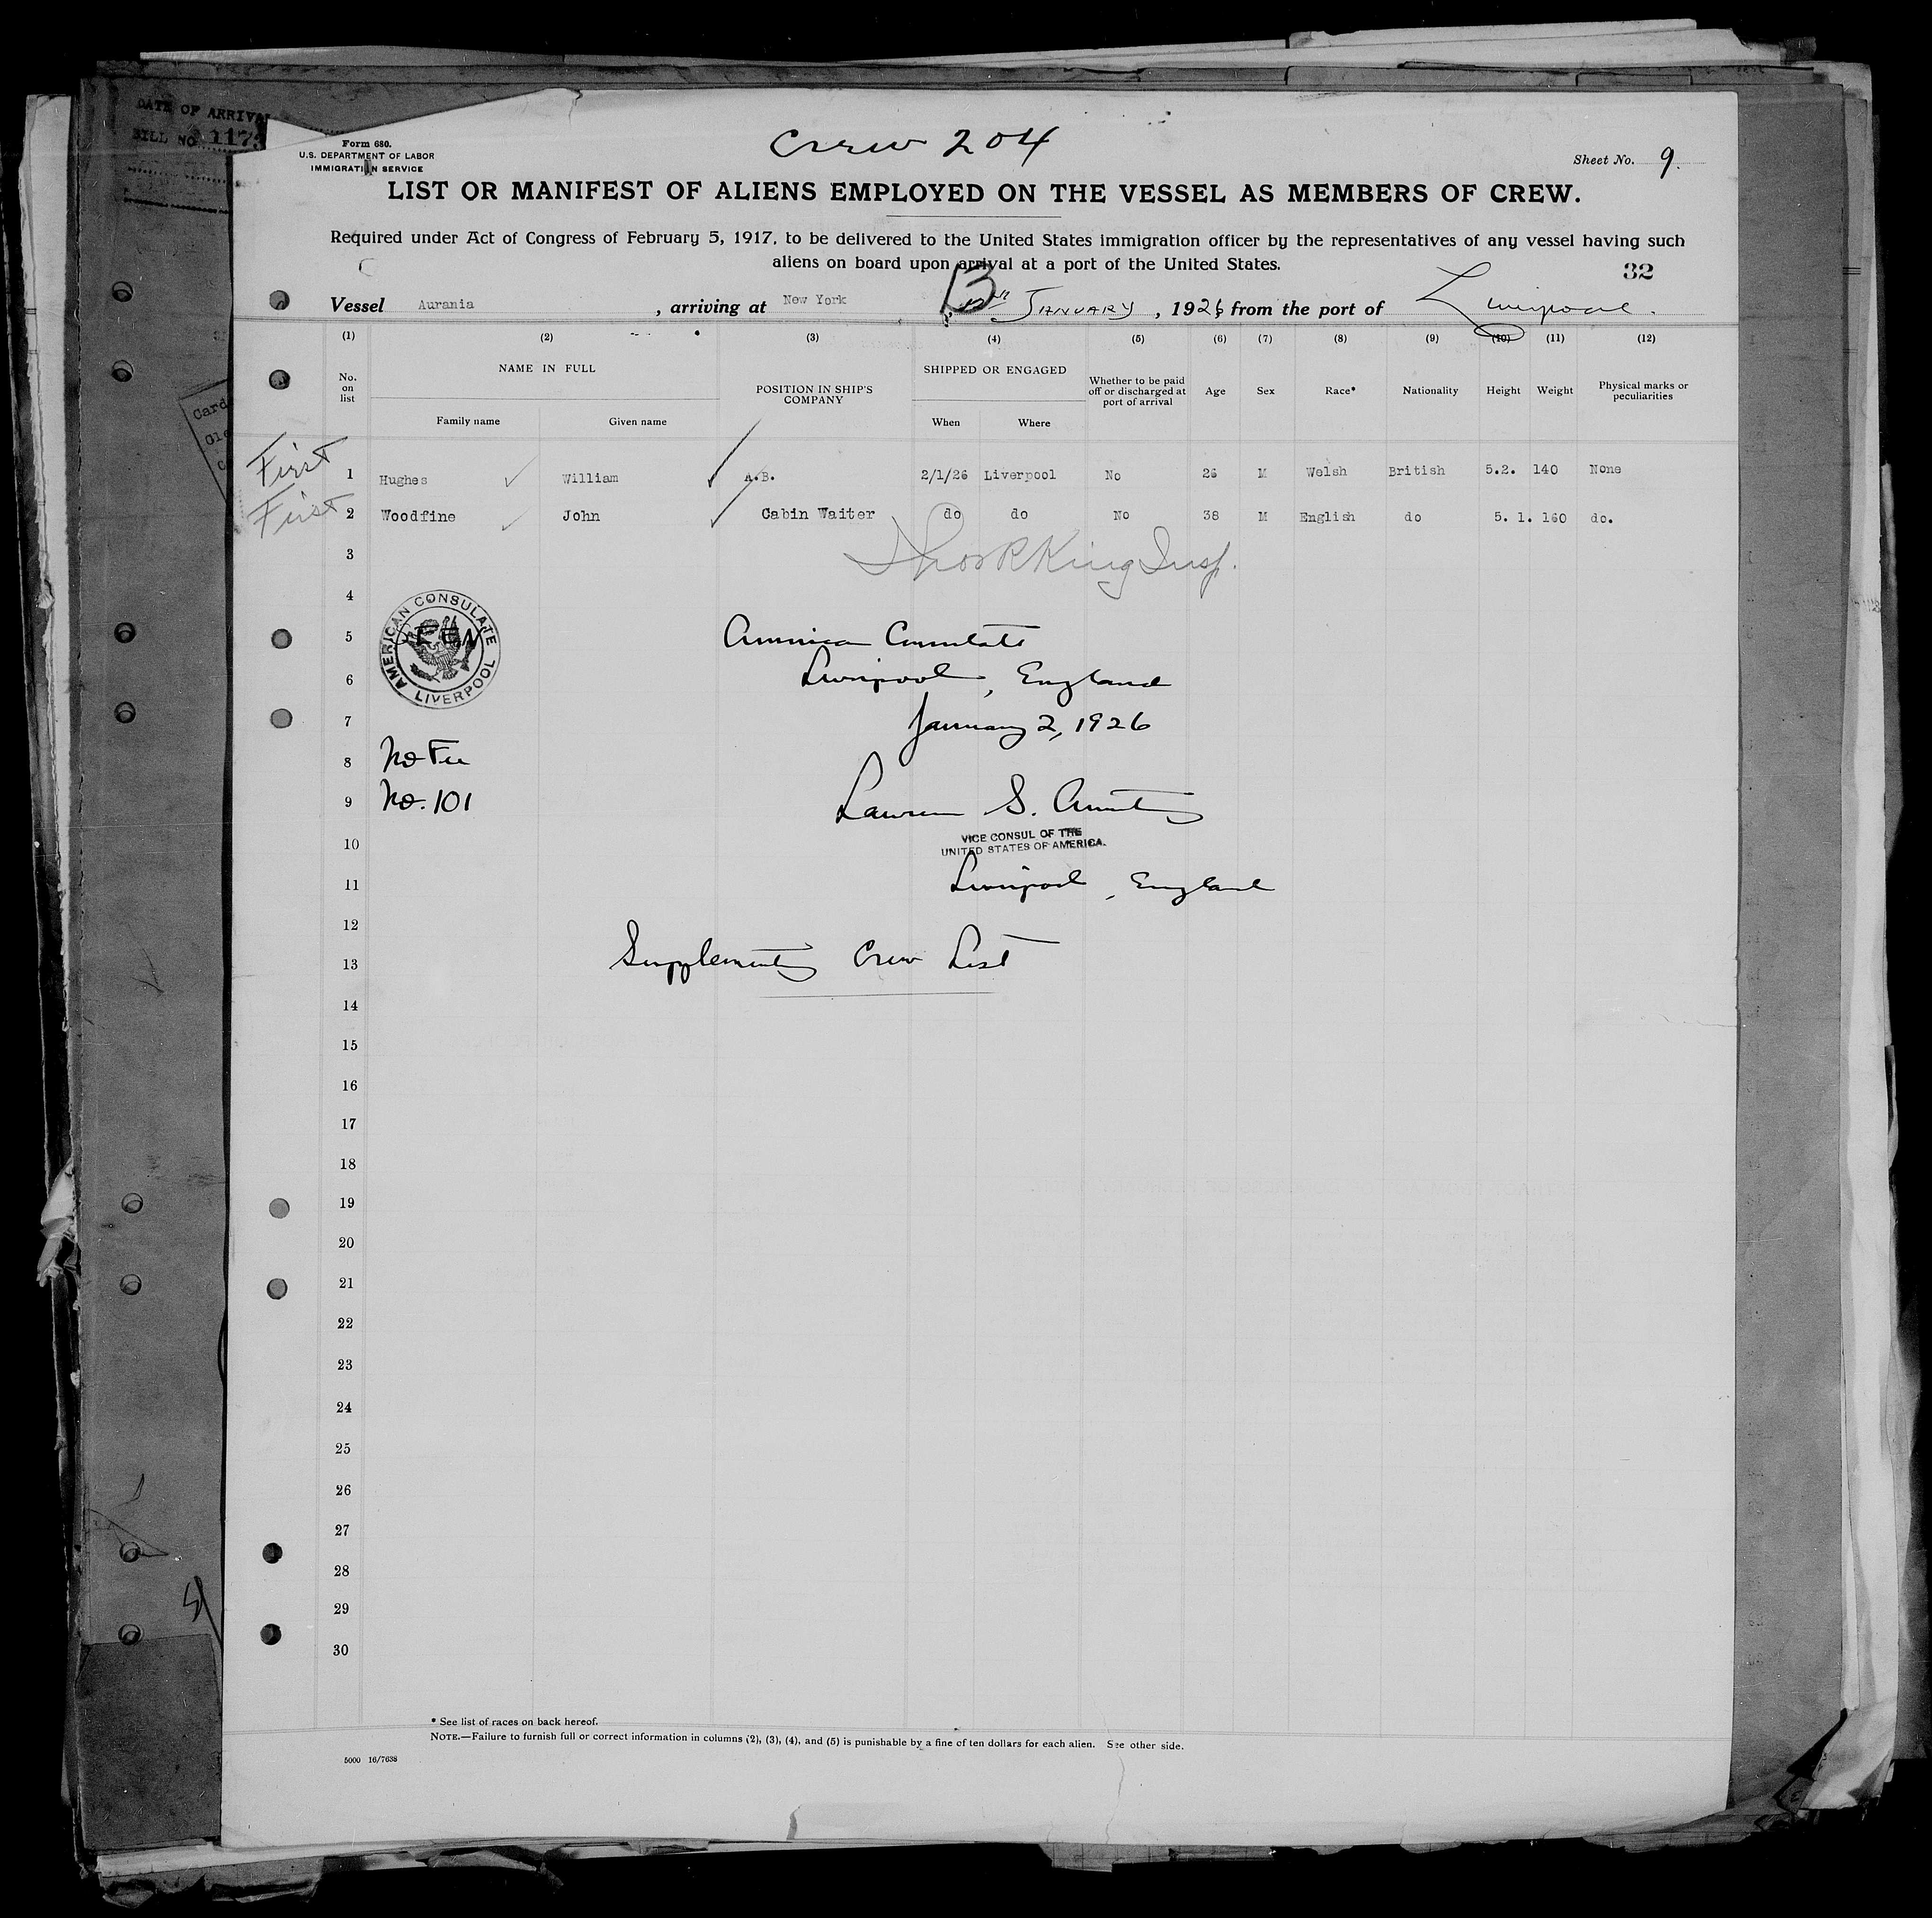 DATE OF ARRIVAL
BILL NO. 117
Card
Form 680.
U.S. DEPARTMENT OF LABOR
IMMIGRATION SERVICE
Crew 204
Sheet No. 9.
LIST OR MANIFEST OF ALIENS EMPLOYED ON THE VESSEL AS MEMBERS OF CREW.
Required under Act of Congress of February 5, 1917, to be delivered to the United States immigration officer by the representatives of any vessel having such
aliens on board upon arrival at a port of the United States.
32
Vessel Aurania, arriving at New York 13 JANUARY, 1926 from the port of Liverpool.
(1) (2) (3) (4) (5) (6) (7) (8) (9) (10) (11) (12)
No. on list NAME IN FULL POSITION IN SHIP'S COMPANY SHIPPED OR ENGAGED Whether to be paid off or discharged at port of arrival Age Sex Race* Nationality Height Weight Physical marks or peculiarities
Family name Given name When Where
First 1 Hughes William A.B. 2/1/26 Liverpool No 26 M Welsh British 5.2. 140 None
First 2 Woodfine John Cabin Waiter do do No 38 M English do 5. 1. 160 do.
3 King Insp.
4
AMERICAN CONSULATE
LIVERPOOL
5 American Consulate
6 Liverpool, England
7 January 2, 1926
8 No Fee
9 No. 101 S.
10 VICE CONSUL OF THE
UNITED STATES OF AMERICA.
11 Liverpool, England
12
13 Supplementary Crew List
14
15
16
17
18
19
20
21
22
23
24
25
26
27
28
29
30
* See list of races on back hereof.
NOTE.—Failure to furnish full or correct information in columns (2), (3), (4), and (5) is punishable by a fine of ten dollars for each alien. See other side.
5000 16/7638